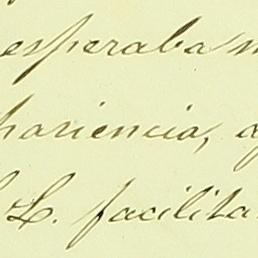 esperaba
pariencia,
L. facilita